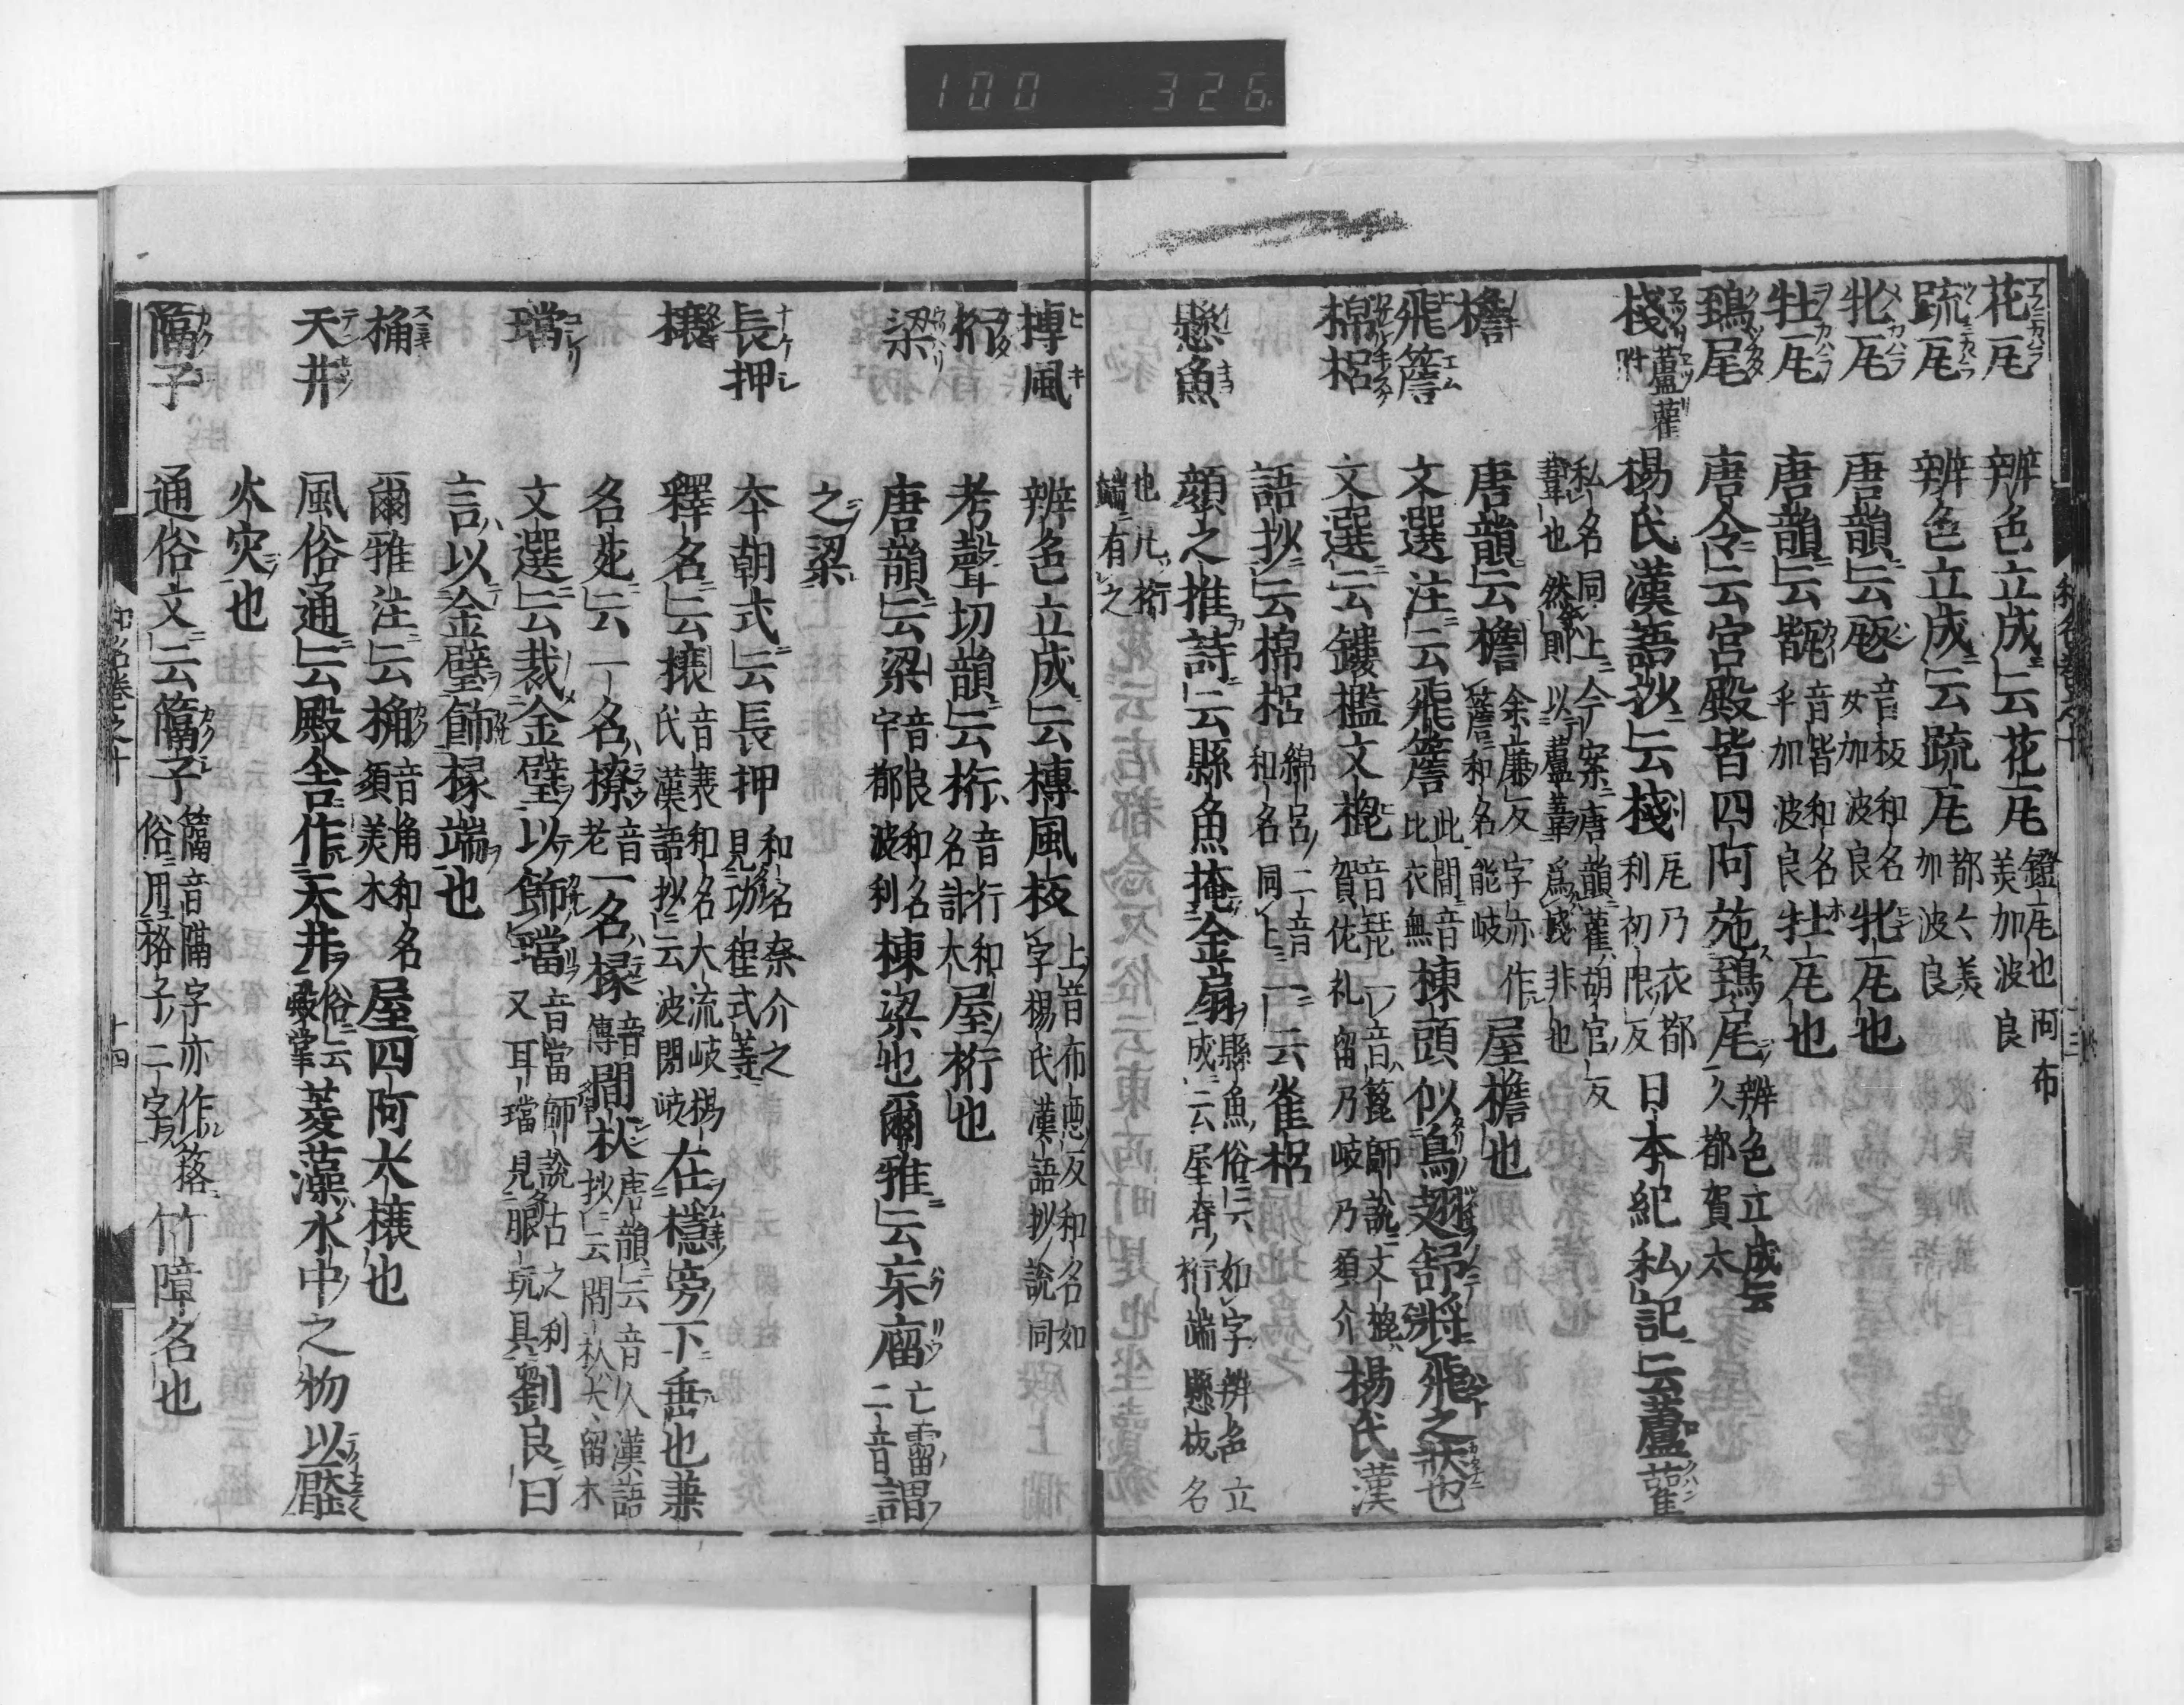 100 326
花瓦 辨色立成云花瓦 鐙瓦也阿布美加波良
疏瓦 辨色立成云疏瓦 都々美加波良
牝瓦 唐韻云瓪 音板和名女加波良 牝瓦也
牡瓦 唐韻云㼧 音皆和名乎加波良 牡瓦也
鵄尾 唐令云宮殿皆四阿施鵄尾 辨色立成云久都賀太
棧 蘆雚附 楊氏漢語抄云棧 瓦乃衣都利初限反 日本紀私記云蘆雚
私名同上今案唐韻雚胡官反葦也然則以蘆葦爲棧非也
檐 唐韻云檐 余廉反字亦作簷和名能岐 屋檐也
飛簷 文選注云飛簷 此間音比衣無 棟頭似鳥翅舒將飛之狀也
棉梠 文選云鏤檻文㮰 音琵一音篦師說文㮰賀佐礼留乃岐乃須介 楊氏漢
語抄云棉梠 綿呂二音和名同上 一云雀梠
懸魚 顏之推詩云縣魚掩金扇 縣魚俗云如字辨色立成云屋脊桁端懸板名
也凡桁端有之
和名卷之十 十三
搏風 辨色立成云搏風板 上音布惠反和名如字楊氏漢語抄說同
桁 考聲切韻云桁 音行和名計太 屋桁也
梁 唐韻云梁 音良和名宇都波利 棟梁也爾雅云杗廇 亡霤二音 謂
之梁
長押 本朝式云長押 和名奈介之見功程式等
榱 釋名云榱 音衰和名大流岐楊氏漢語抄云波閇岐 在檼旁下垂也兼
名苑云一名橑 音老 一名椽 音傳 閒杁 唐韻云音久漢語抄云閒杁大留木
璫 文選云裁金璧以飾璫 音當師說古之利又耳璫見服玩具 劉良曰
言以金璧飾椽端也
桷 爾雅注云桷 音角和名須美木 屋四阿大榱也
天井 風俗通云殿舍作天井 俗云殿掌 菱藻水中之物以壓
火灾也
隔子 通俗文云䈷子 䈷音隔字亦作䈷俗用格子二字 竹障名也
和名卷之十 十四